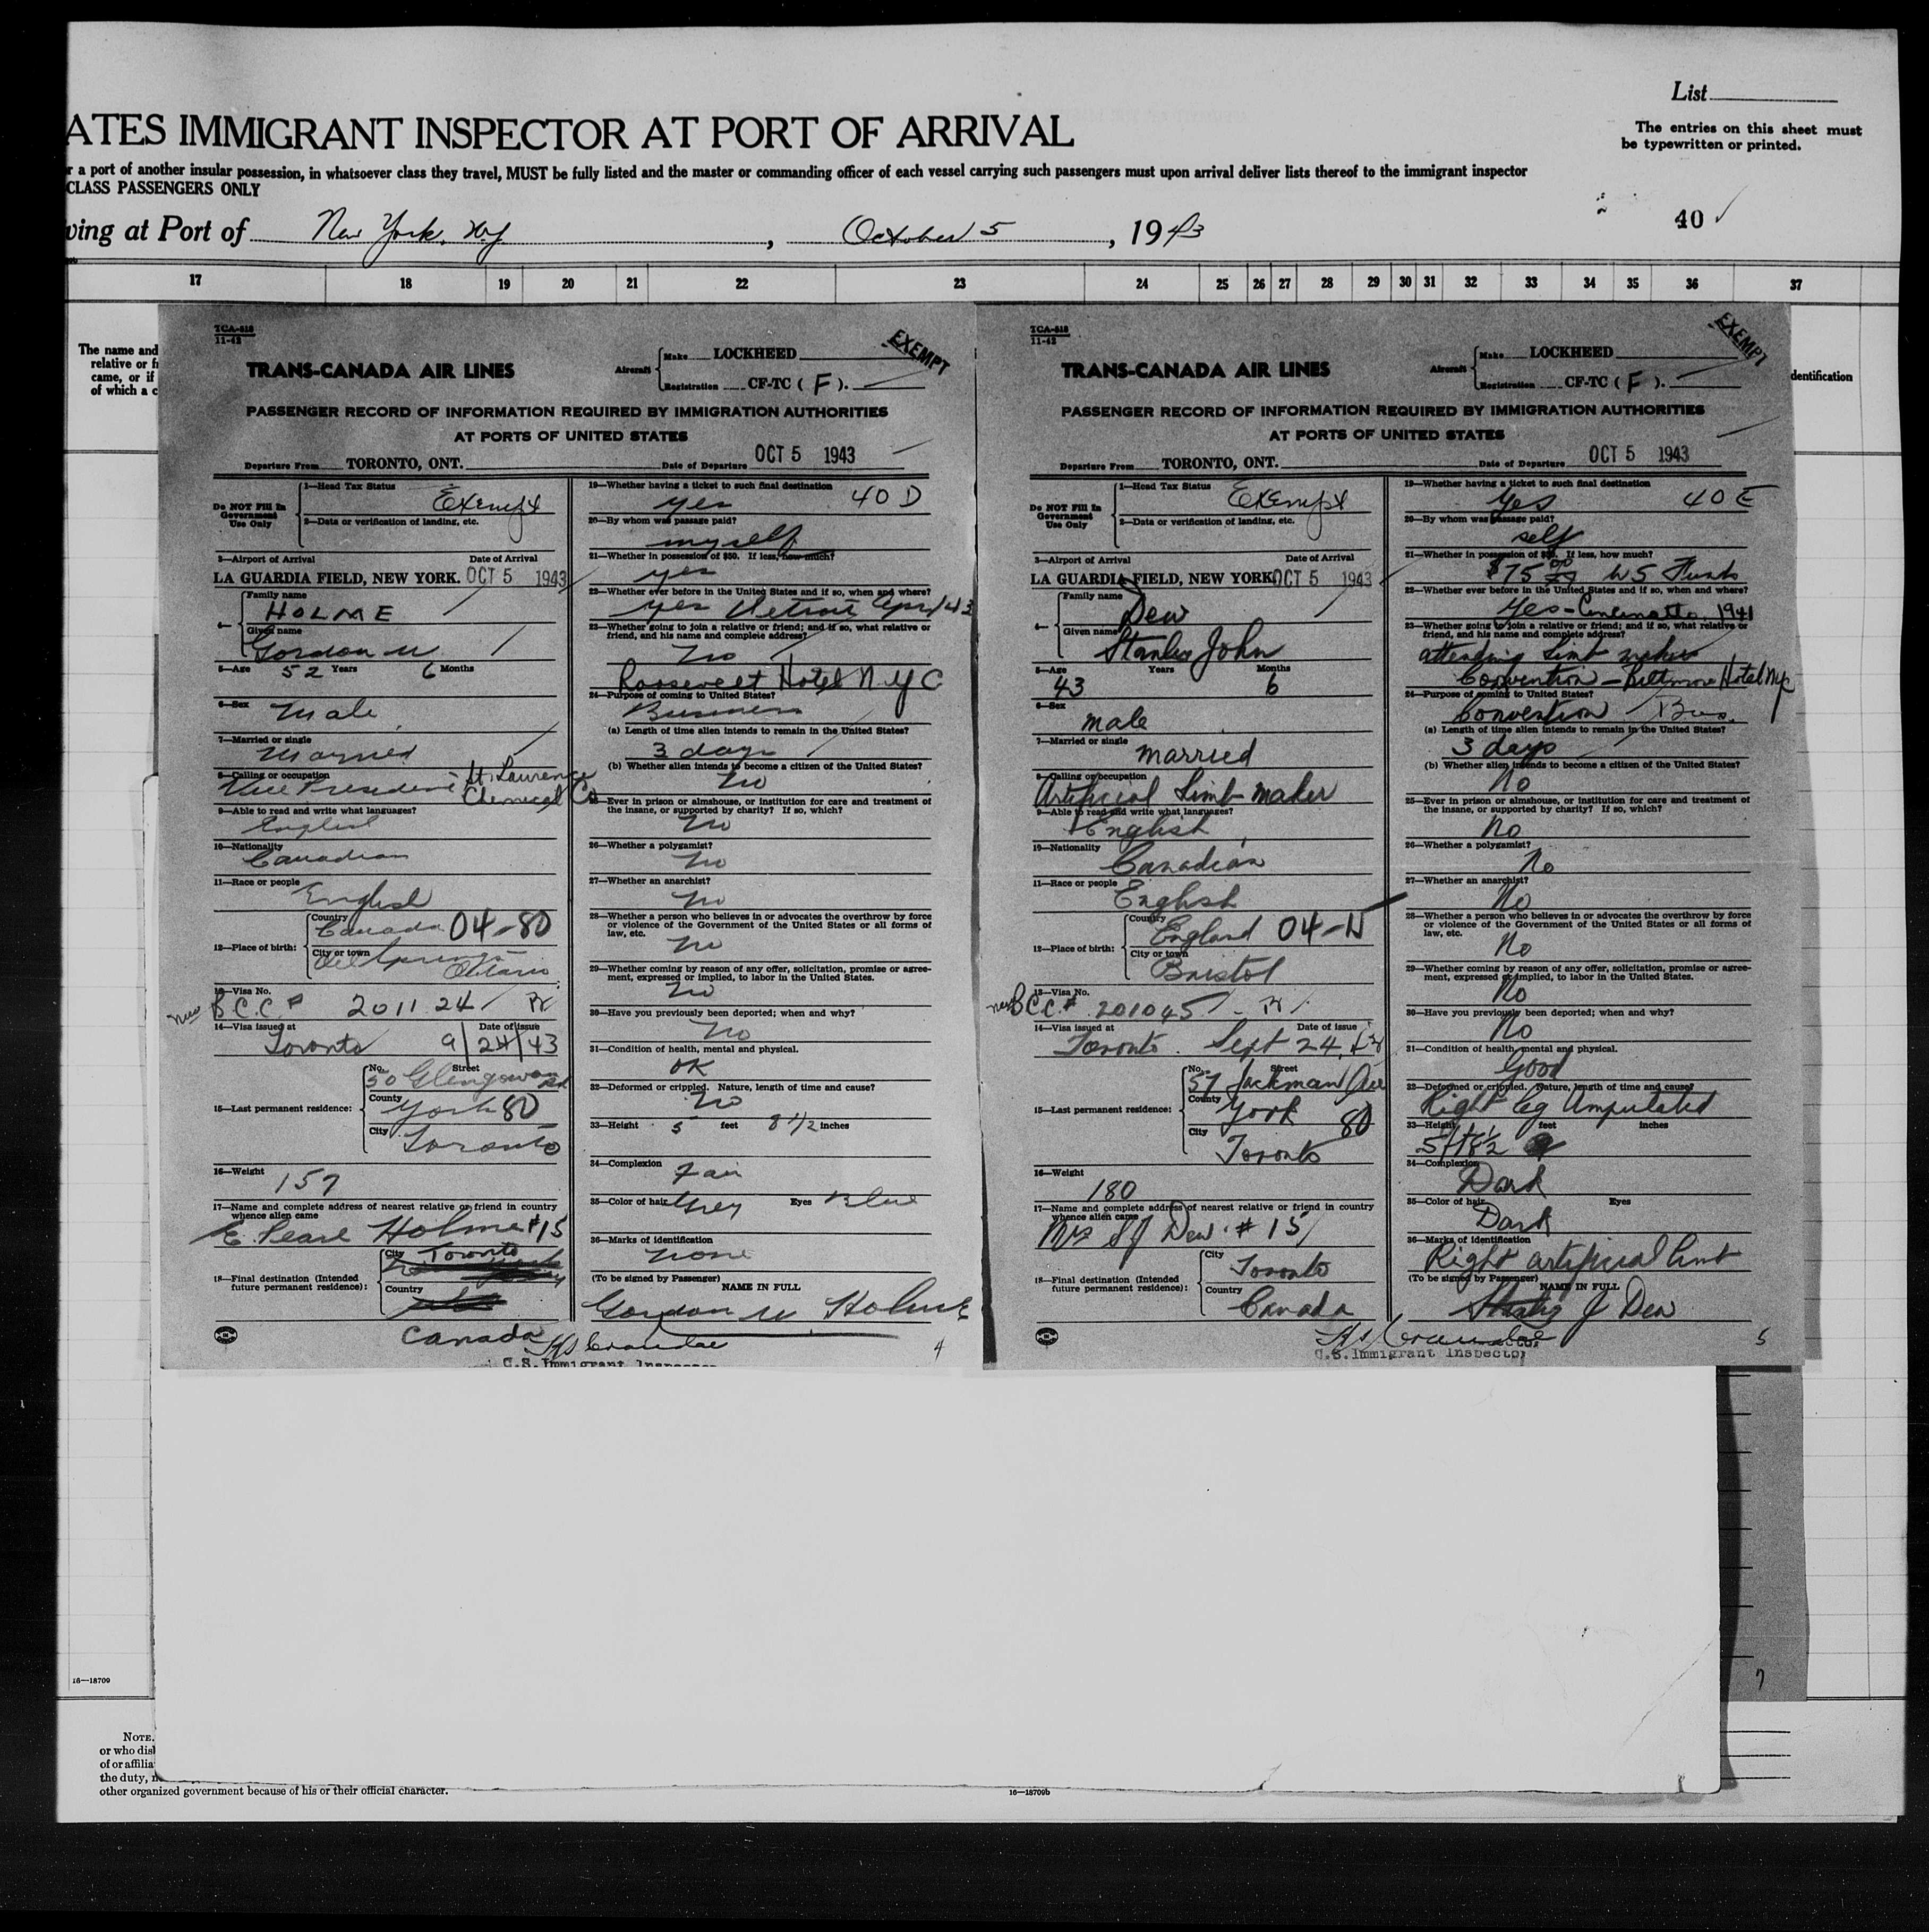 List
ATES IMMIGRANT INSPECTOR AT PORT OF ARRIVAL
The entries on this sheet must
be typewritten or printed.
r a port of another insular possession, in whatsoever class they travel, MUST be fully listed and the master or commanding officer of each vessel carrying such passengers must upon arrival deliver lists thereof to the immigrant inspector
CLASS PASSENGERS ONLY
40
ving at Port of New York, NY, October 5, 1943
17 18 19 20 21 22 23 24 25 26 27 28 29 30 31 32 33 34 35 36 37
The name and
relative or f
came, or if
of which a c
dentification
TCA-818
11-42
EXEMPT
TRANS-CANADA AIR LINES
Aircraft Make LOCKHEED
Registration CF-TC ( F ).
PASSENGER RECORD OF INFORMATION REQUIRED BY IMMIGRATION AUTHORITIES
AT PORTS OF UNITED STATES
Departure From TORONTO, ONT. Date of Departure OCT 5 1943
Do NOT Fill In
Government
Use Only
1—Head Tax Status
Exempt
2—Data or verification of landing, etc.
3—Airport of Arrival Date of Arrival
LA GUARDIA FIELD, NEW YORK. OCT 5 1943
4— Family name
HOLME
Given name
Gordon W
5—Age 52 Years 6 Months
6—Sex
Male
7—Married or single
Married
8—Calling or occupation
Vice President St. Laurence
Chemical Co
9—Able to read and write what languages?
English
10—Nationality
Canadian
11—Race or people
English
12—Place of birth: Country
Canada 04-80
City or town
Oil Springs
Ontario
13—Visa No.
new B.C.C.# 201124
14—Visa issued at Date of issue
Toronto 9/24/43
15—Last permanent residence: No. Street
50 Glengowan Rd
County
York 80
City
Toronto
16—Weight
157
17—Name and complete address of nearest relative or friend in country
whence alien came
E. Pearl Holme #15
18—Final destination (Intended
future permanent residence):
City
Toronto
Country
Canada
19—Whether having a ticket to such final destination
yes 40 D
20—By whom was passage paid?
myself
21—Whether in possession of $50. If less, how much?
yes
22—Whether ever before in the United States and if so, when and where?
yes Detroit April 43
23—Whether going to join a relative or friend; and if so, what relative or
friend, and his name and complete address?
No
Roosevelt Hotel N.Y C
24—Purpose of coming to United States?
Business
(a) Length of time alien intends to remain in the United States?
3 days
(b) Whether alien intends to become a citizen of the United States?
No
25—Ever in prison or almshouse, or institution for care and treatment of
the insane, or supported by charity? If so, which?
No
26—Whether a polygamist?
No
27—Whether an anarchist?
No
28—Whether a person who believes in or advocates the overthrow by force
or violence of the Government of the United States or all forms of
law, etc.
No
29—Whether coming by reason of any offer, solicitation, promise or agree-
ment, expressed or implied, to labor in the United States.
No
30—Have you previously been deported; when and why?
No
31—Condition of health, mental and physical.
OK
32—Deformed or crippled. Nature, length of time and cause?
No
33—Height 5 feet 8 1/2 inches
34—Complexion
Fair
35—Color of hair Grey Eyes Blue
36—Marks of identification
None
(To be signed by Passenger) NAME IN FULL
Gordon W Holme
U.S. Immigrant Inspector
4
TCA-818
11-42
EXEMPT
TRANS-CANADA AIR LINES
Aircraft Make LOCKHEED
Registration CF-TC ( F ).
PASSENGER RECORD OF INFORMATION REQUIRED BY IMMIGRATION AUTHORITIES
AT PORTS OF UNITED STATES
Departure From TORONTO, ONT. Date of Departure OCT 5 1943
Do NOT Fill In
Government
Use Only
1—Head Tax Status
Exempt
2—Data or verification of landing, etc.
3—Airport of Arrival Date of Arrival
LA GUARDIA FIELD, NEW YORK OCT 5 1943
4— Family name
Dew
Given name
Stanley John
5—Age Years Months
43 6
6—Sex
male
7—Married or single
married
8—Calling or occupation
Artificial Limb maker
9—Able to read and write what languages?
English
10—Nationality
Canadian
11—Race or people
English
12—Place of birth: Country
England 04-W
City or town
Bristol
13—Visa No.
new B.C.C.# 201045
14—Visa issued at Date of issue
Toronto. Sept 24, 43
15—Last permanent residence: No. Street
57 Jackman Ave
County
York 80
City
Toronto
16—Weight
180
17—Name and complete address of nearest relative or friend in country
whence alien came
Mrs S J Dew. # 15
18—Final destination (Intended
future permanent residence):
City
Toronto
Country
Canada
19—Whether having a ticket to such final destination
Yes 40 E
20—By whom was passage paid?
self
21—Whether in possession of $50. If less, how much?
$75 00 US Funds
22—Whether ever before in the United States and if so, when and where?
Yes - Cincinatti, 1941
23—Whether going to join a relative or friend; and if so, what relative or
friend, and his name and complete address?
attending Limb makers
Convention - Biltmore Hotel NYC
24—Purpose of coming to United States?
Convention Bus.
(a) Length of time alien intends to remain in the United States?
3 days
(b) Whether alien intends to become a citizen of the United States?
No
25—Ever in prison or almshouse, or institution for care and treatment of
the insane, or supported by charity? If so, which?
No
26—Whether a polygamist?
No
27—Whether an anarchist?
No
28—Whether a person who believes in or advocates the overthrow by force
or violence of the Government of the United States or all forms of
law, etc.
No
29—Whether coming by reason of any offer, solicitation, promise or agree-
ment, expressed or implied, to labor in the United States.
No
30—Have you previously been deported; when and why?
No
31—Condition of health, mental and physical.
Good
32—Deformed or crippled. Nature, length of time and cause?
Right leg Amputated
33—Height feet inches
34—Complexion
Dark
35—Color of hair Eyes
Dark
36—Marks of identification
Right artificial limb
(To be signed by Passenger) NAME IN FULL
Stanley J Dew
U.S. Immigrant Inspector
5
7
16—18709
NOTE.
or who dis
of or affilia
the duty,
other organized government because of his or their official character.
16—18709b